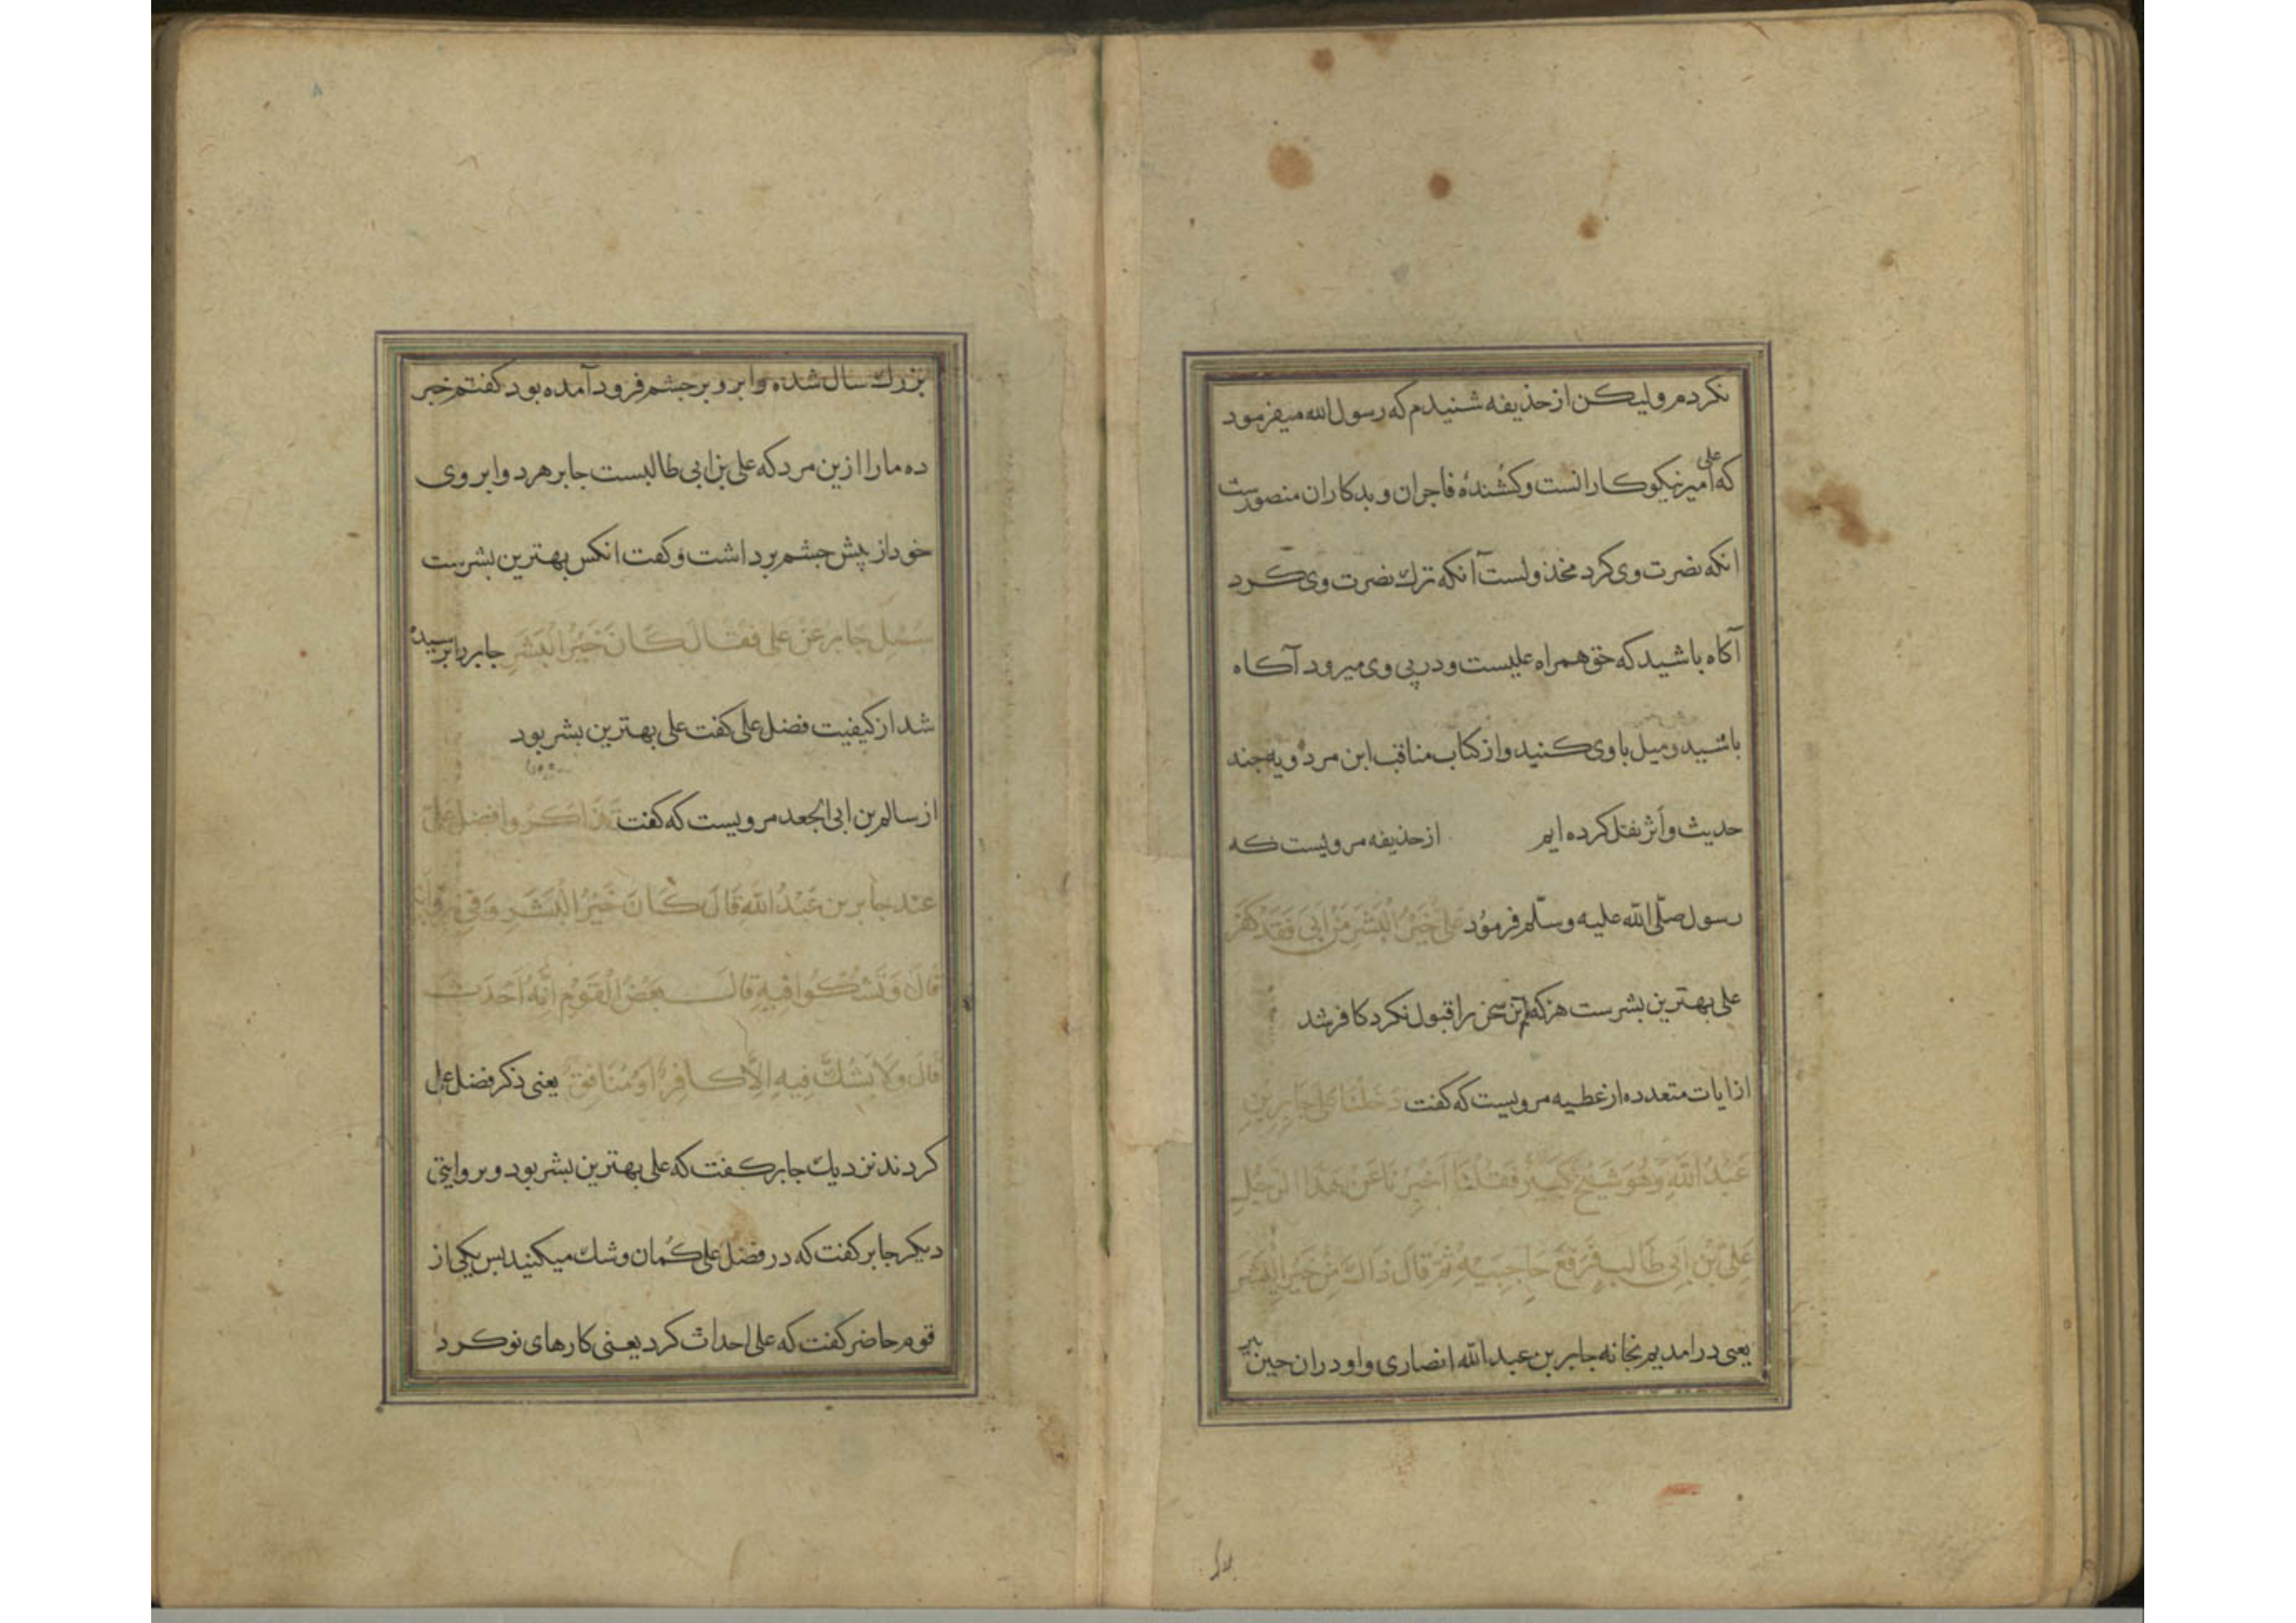 نکردم ولیکن از حذیفه شنیدم که رسول الله میفرمود
که علی امیر نیکوکارانست و کشندهٔ فاجران و بدکاران منصورست
انکه نصرت وی کرد مخذولست آنکه ترك نصرت وی کرد
آکاه باشید که حق همراه علیست و در پی وی میرود آکاه
باشید و میل با وی کنید و از کتاب مناقب ابن مردویه جند
حدیث و أثر نقل کرده ایم از حذیفه مرویست که
رسول صلّی الله علیه وسلّم فرمود علی خَیْرُ الْبَشَرِ مَنْ اَبیَ فَقَدْ کَفَرَ
علی بهترین بشرست هرکه این سخن را قبول نکرد کافر شد
از ایات متعدده از عطیه مرویست که کفت دَخَلْنَا عَلی جَابِرِبْنِ
عَبْدُ اللّٰهِ وَهُوَ شَیْخٌ کَبیرٌ فَقُلْنَا اَخْبِرْنَا عَنْ هٰذَا الرَّجُلِ
عَلِیِّ بْنِ اَبِی طَالِب فَرَفَعَ حَاجِبَیْهِ ثُمَّ قَالَ ذَاكَ مِنْ خَیْرِ الْبَشَرِ
یعنی درامدیم بخانه جابر بن عبد اللّٰه انصاری و او دران حین پیر
بزرك سال شده و ابرو بر جشم فرود آمده بود کفتم خبر
ده مارا ازین مرد که علی بن ابی طالبست جابر هر دو ابروی
خود از پش جشم برداشت و کفت انکس بهترین بشرست
سُئِلَ جابر عَنْ علی فقال کَانَ خَیْرُ الْبَشَرِ جابر را پرسیده
شد از کیفیت فضل علی کفت علی بهترین بشر بود
از سالم بن ابی الجعد مرویست که کفت تَذَاکَرُوا فضل عَلی
عند جابر بن عَبْدُ اللّٰه قَالَ کَانَ خَیْرُ الْبَشَرِ وَفی
قَالَ وَتَشُکُّوا فِیهِ قَالَ بَعْضُ الْقَوْمِ اِنَّهُ اَحْدَثَ
قَالَ وَلَا یَشُكُّ فیهِ اِلَّا کَافِرٌ اَوْ مُنَافِقٌ یعنی ذکر فضل علی
کردند نزدیك جابر کفت که علی بهترین بشر بود و بر وایتی
دیکر جابر کفت که در فضل علی کُمان و شك میکنید بس یکی از
قوم حاضر کفت که علی احداث کرد یعنی کارهای نو کرد